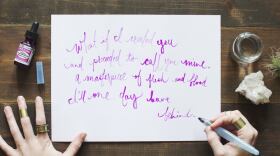 What if I created you
and proceeded to call you mine.
a masterpiece of flesh and blood
I'll one day leave